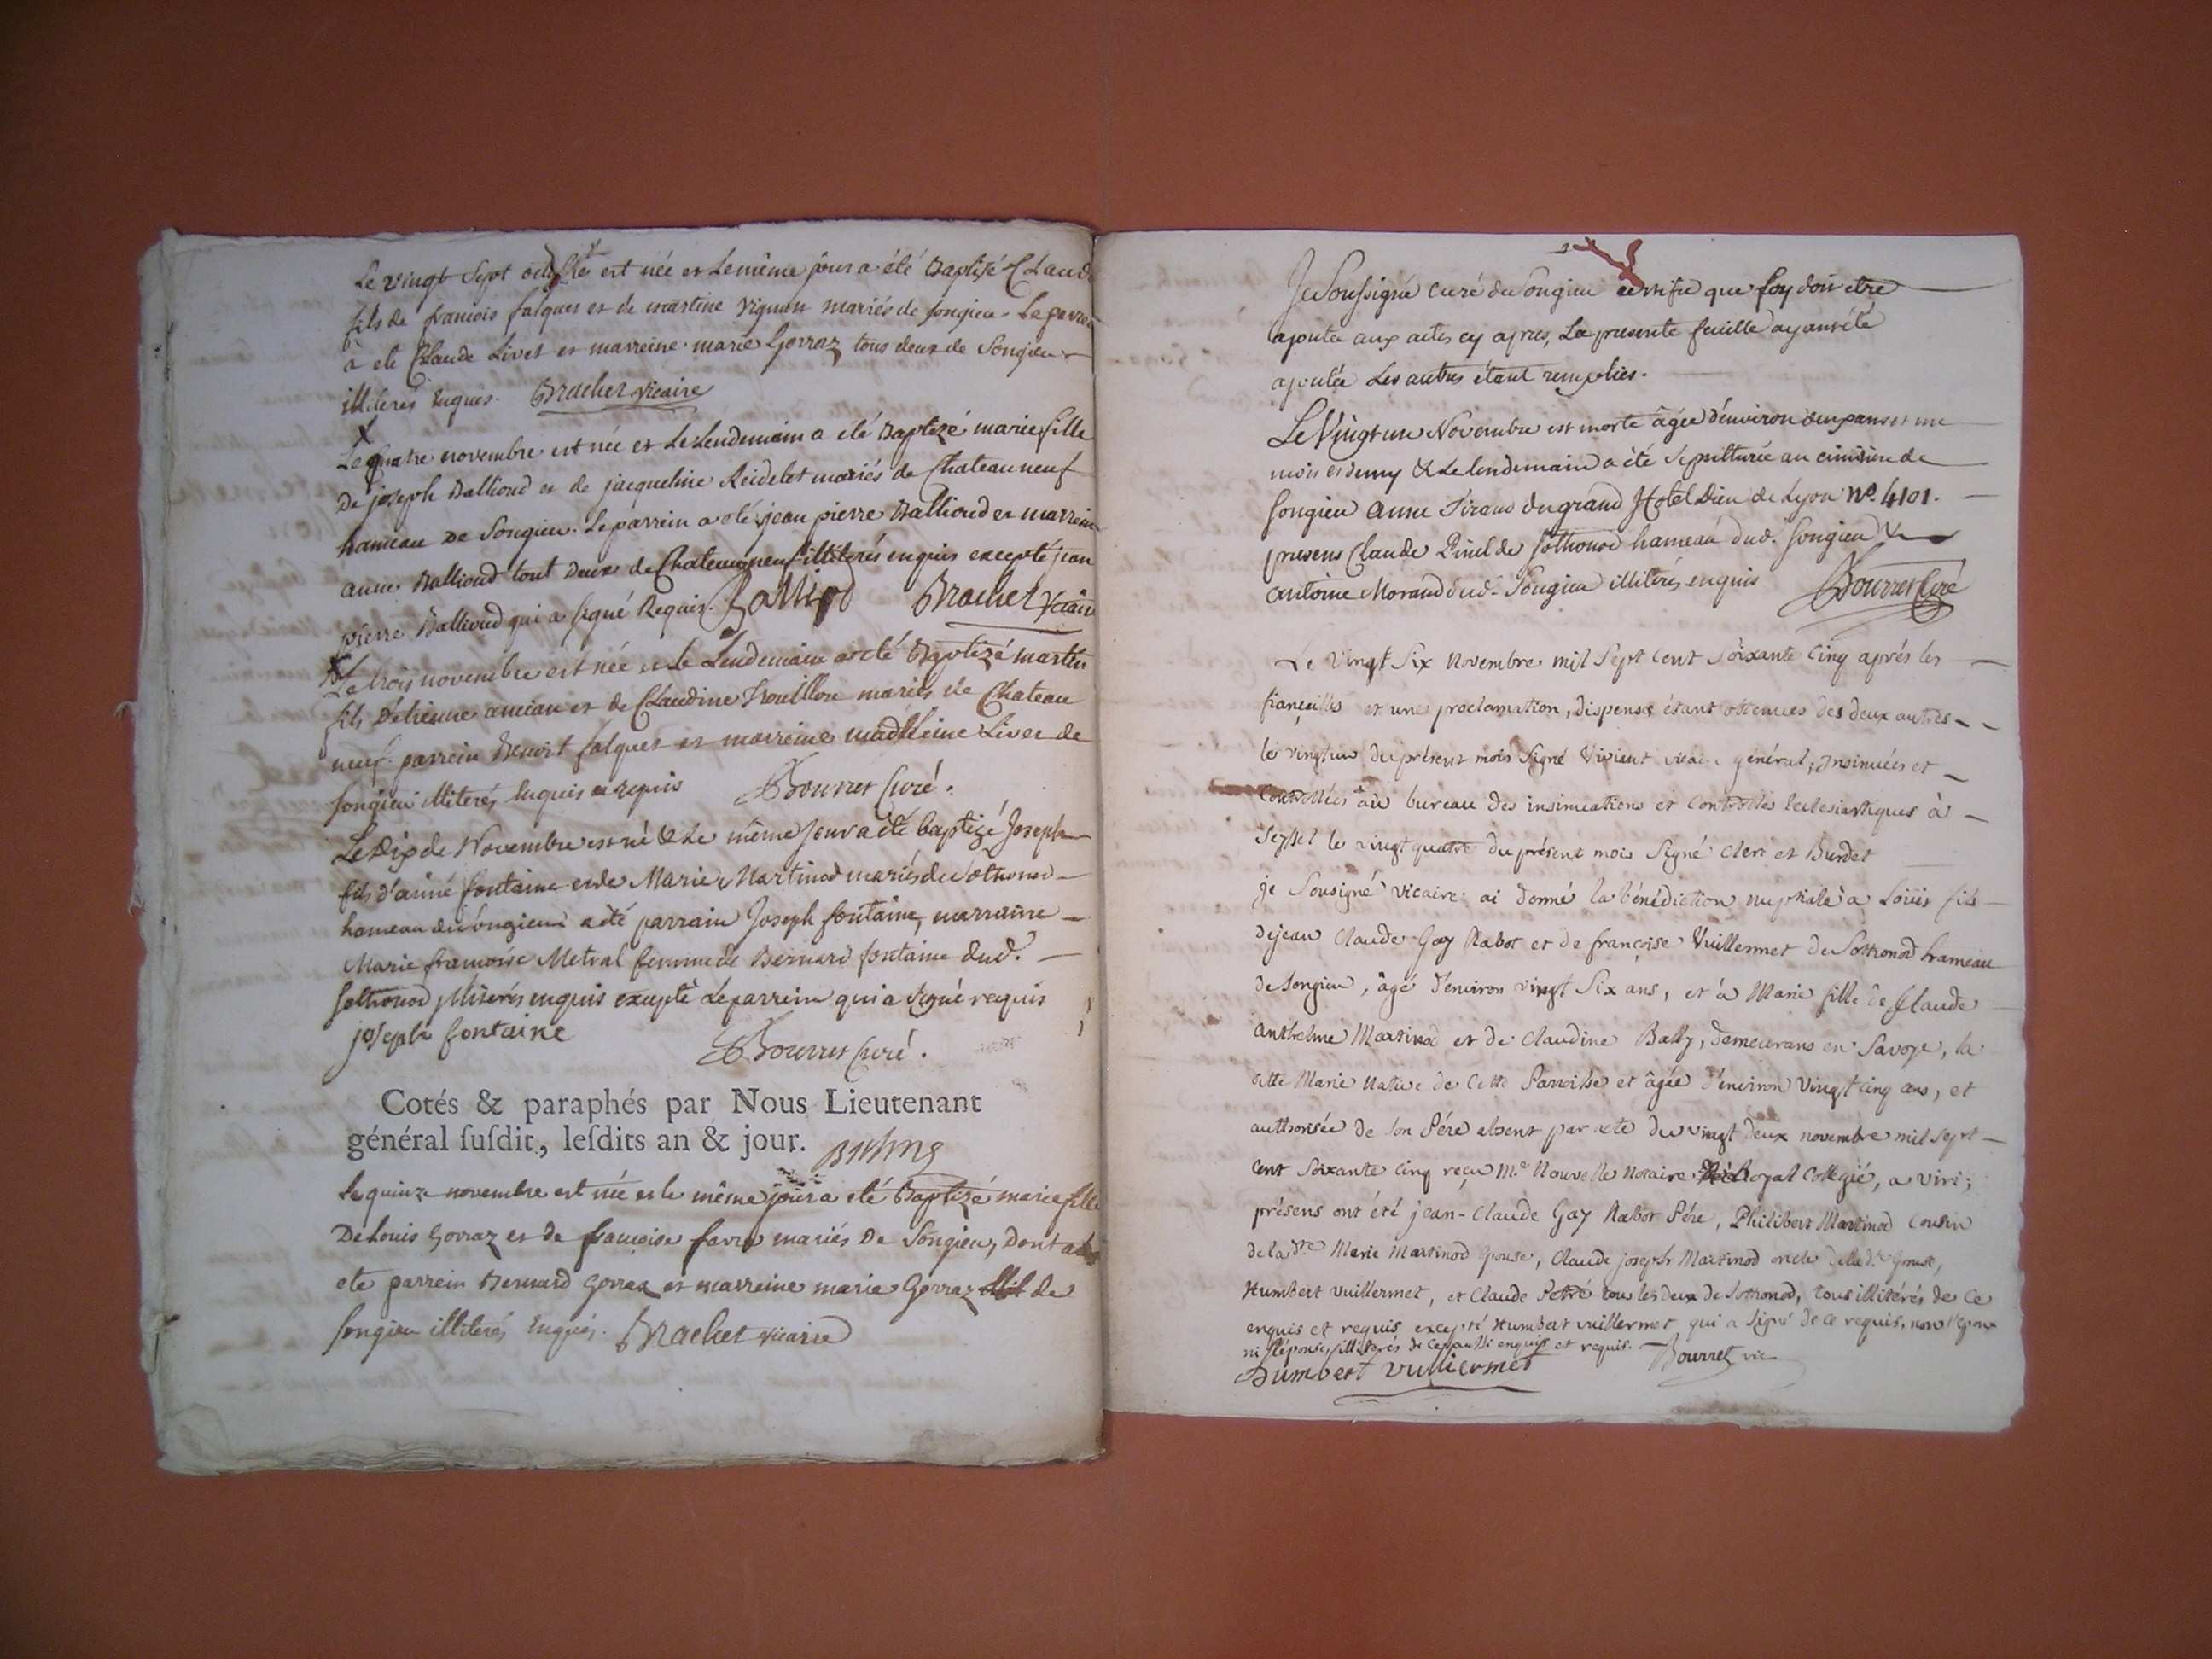 Le vingt Sept octobre est née et Le même jour a été Baptizé Claude
fils de francois falques et de martine vignan mariés de songieu. Le parrein
à eté Claude Livet et marreine marie Gorraz tous deux de Songieu
illiterés Enquis. Brachet vicaire
Le quatre novembre est née et Le Lendemain a été Baptizé marie fille
De joseph Ballioud et de jacqueline Reidelet mariés de Chateauneuf
hameau De Songieu. Le parrein a été jean pierre Ballioud et marreine
anne Ballioud tout Deux de Chateauneuf illiterés enquis excepté jean
pierre Ballioud qui a signé Requis. Balliod Brachet vicaire
Le trois novembre est née et Le Lendemain a eté Baptizé martin
fils D'etienne ancian et de Claudine Trouillon mariés de Chateau
neuf. parrein Benoit falques et marreine madeleine Livet de
songieu illiterés Enquis et requis Bourret Curé.
Le Dix de Novembre est né & Le même jour a été baptizé Joseph
fils d'aimé fontaine et de Marie Martinod mariés de Sothonod
hameau de songieu a été parrain Joseph fontaine, marraine
Marie francoise Metral femme de Bernard fontaine dud.
Sothonod illiterés enquis excepté Le parrein qui a signé requis
joseph fontaine Bourret Curé.
Cotés & paraphés par Nous Lieutenant
général susdit, lesdits an & jour.
Le quinze novembre est née et le même jour a eté Baptizé marie fille
De Louis Gorraz et de francoise favre mariés De Songieu, Dont a
ete parrein Bernard Gorraz et marreine marie Gorraz de
songieu illiterés Enquis. Brachet vicaire
Je Soussigné curé de Songieu certifie que foy doit etre
ajoutée aux actes cy apres, La presente feuille ayant été
ajoutée Les autres étant remplies.
Le Vingt un Novembre est morte âgée d'environ deux ans et un
mois et demy & Le lendemain a été sepulturée au cimitiere de
Songieu Anne Tirand du grand Hotel Dieu de Lyon N°. 4101.
presens Claude Pinel de Sothonod hameau dud. Songieu &
antoine Morand dud. Songieu illiterés enquis Bourret Curé
Le vingt Six novembre mil Sept Cent Soixante Cinq après les
fiançailles et une proclamation, dispense étant obtenues des deux autres
le vingt un du présent mois Signé Vivient vicaire général, insinuées et
Controllées au bureau des insinuations et Controlles Ecclesiastiques à
Seyssel le vingt quatre du présent mois Signé Clerc et Burdet
je Sousigné vicaire ai donné la bénédiction nuptiale à Loüis fils
de jean Claude Gay Rabot et de françoise Vuillermet de Sothonod hameau
de Songieu, âgé d'environ vingt Six ans, et à Marie fille de Claude
Anthelme Martinod et de Claudine Bally, demeurans en Savoye, la
ditte Marie Native de Cette Parroisse et âgée d'environ Vingt Cinq ans, et
authorisée de son Pére absent par acte du vingt deux novembre mil Sept
Cent Soixante Cinq reçu Me Nouvelle Notaire Royal Collegié, a Viri;
présens ont été jean-Claude Gay Rabot Pére, Philibert Martinod Cousin
de la dte Marie Martinod Epouse, Claude joseph Martinod oncle de la de Epouse,
Humbert Vuillermet, et Claude Petré tous les deux de Sothonod, tous illitérés de Ce
enquis et requis excepté Humbert Vuillermet qui a Signé de Ce requis, non l'epoux
ni l'épouse, illitérés de Ce aussi enquis et requis. Bourret vic
humbert vulliermet